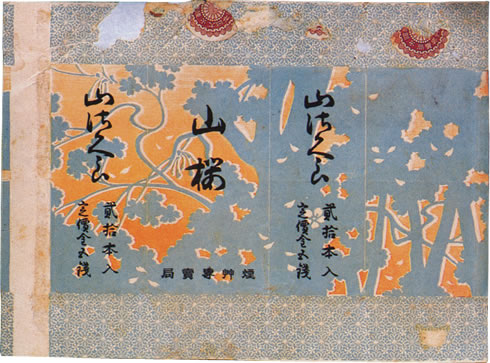 山さくら
貳拾本入
定價金五錢
山櫻
煙艸專賣局
山さくら
貳拾本入
定價金五錢